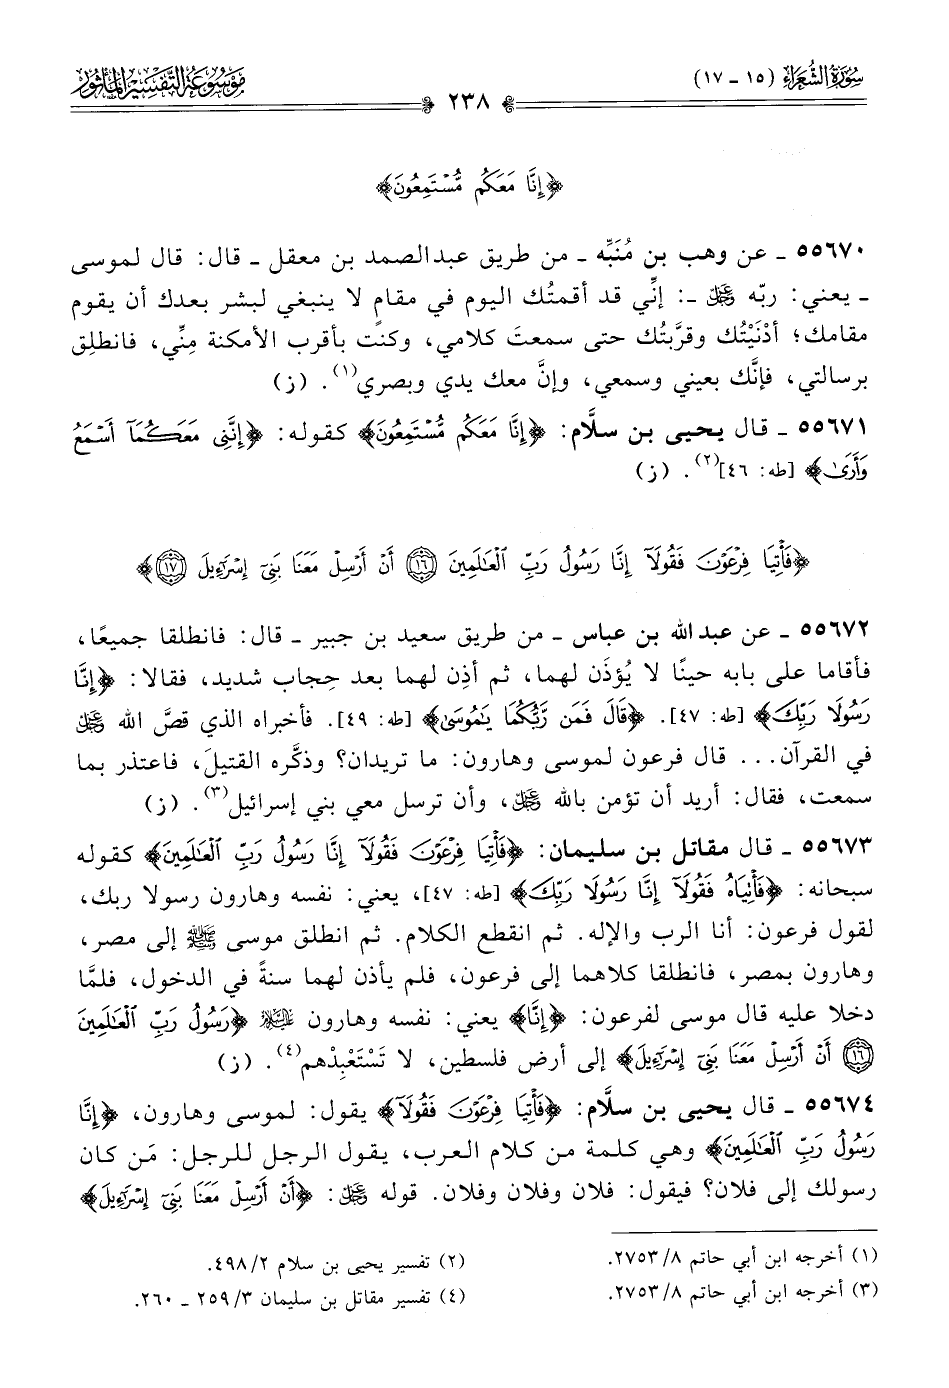 سُورَةُ الشُّعَرَاءِ (١٥ - ١٧)
مَوْسُوعَةُ التَّفْسِيرِ المَأْثُورِ
٢٣٨
﴿إِنَّا مَعَكُم مُّسْتَمِعُونَ﴾
٥٥٦٧٠ ـ عن وهب بن مُنَبِّه ـ من طريق عبدالصمد بن معقل ـ قال: قال لموسى
ـ يعني: ربّه ﷿ ـ: إنِّي قد أقمتُك اليوم في مقامٍ لا ينبغي لبشر بعدك أن يقوم
مقامك؛ أدْنَيْتُك وقرَّبتُك حتى سمعتَ كلامي، وكنت بأقرب الأمكنة مِنِّي، فانطلِق
برسالتي، فإنَّك بعيني وسمعي، وإنَّ معك يدي وبصري(١). (ز)
٥٥٦٧١ ـ قال يحيى بن سلَّام: ﴿إِنَّا مَعَكُم مُّسْتَمِعُونَ﴾ كقوله: ﴿إِنَّنِي مَعَكُمَآ أَسْمَعُ
وَأَرَىٰ﴾ [طه: ٤٦](٢). (ز)
﴿فَأْتِيَا فِرْعَوْنَ فَقُولَآ إِنَّا رَسُولُ رَبِّ ٱلْعَٰلَمِينَ ١٦ أَنْ أَرْسِلْ مَعَنَا بَنِيٓ إِسْرَٰٓءِيلَ ١٧﴾
٥٥٦٧٢ ـ عن عبدالله بن عباس ـ من طريق سعيد بن جبير ـ قال: فانطلقا جميعًا،
فأقاما على بابه حينًا لا يُؤذَن لهما، ثم أذِن لهما بعد حِجاب شديد، فقالا: ﴿إِنَّا
رَسُولَا رَبِّكَ﴾ [طه: ٤٧]. ﴿قَالَ فَمَن رَّبُّكُمَا يَٰمُوسَىٰ﴾ [طه: ٤٩]. فأخبراه الذي قصَّ الله ﷿
في القرآن... قال فرعون لموسى وهارون: ما تريدان؟ وذكَّره القتيلَ، فاعتذر بما
سمعت، فقال: أريد أن تؤمن بالله ﷿، وأن ترسل معي بني إسرائيل(٣). (ز)
٥٥٦٧٣ ـ قال مقاتل بن سليمان: ﴿فَأْتِيَا فِرْعَوْنَ فَقُولَآ إِنَّا رَسُولُ رَبِّ ٱلْعَٰلَمِينَ﴾ كقوله
سبحانه: ﴿فَأْتِيَاهُ فَقُولَآ إِنَّا رَسُولَا رَبِّكَ﴾ [طه: ٤٧]، يعني: نفسه وهارون رسولا ربك،
لقول فرعون: أنا الرب والإله. ثم انقطع الكلام. ثم انطلق موسى ﷺ إلى مصر،
وهارون بمصر، فانطلقا كلاهما إلى فرعون، فلم يأذن لهما سنةً في الدخول، فلمَّا
دخلا عليه قال موسى لفرعون: ﴿إِنَّا﴾ يعني: نفسه وهارون ﵇ ﴿رَسُولُ رَبِّ ٱلْعَٰلَمِينَ
١٦ أَنْ أَرْسِلْ مَعَنَا بَنِيٓ إِسْرَٰٓءِيلَ﴾ إلى أرض فلسطين، لا تَسْتَعْبِدْهم(٤). (ز)
٥٥٦٧٤ ـ قال يحيى بن سلَّام: ﴿فَأْتِيَا فِرْعَوْنَ فَقُولَآ﴾ يقول: لموسى وهارون، ﴿إِنَّا
رَسُولُ رَبِّ ٱلْعَٰلَمِينَ﴾ وهي كلمة من كلام العرب، يقول الرجل للرجل: مَن كان
رسولك إلى فلان؟ فيقول: فلان وفلان وفلان. قوله ﷿: ﴿أَنْ أَرْسِلْ مَعَنَا بَنِيٓ إِسْرَٰٓءِيلَ﴾
(١) أخرجه ابن أبي حاتم ٨/ ٢٧٥٣.
(٢) تفسير يحيى بن سلام ٢/ ٤٩٨.
(٣) أخرجه ابن أبي حاتم ٨/ ٢٧٥٣.
(٤) تفسير مقاتل بن سليمان ٣/ ٢٥٩ ـ ٢٦٠.